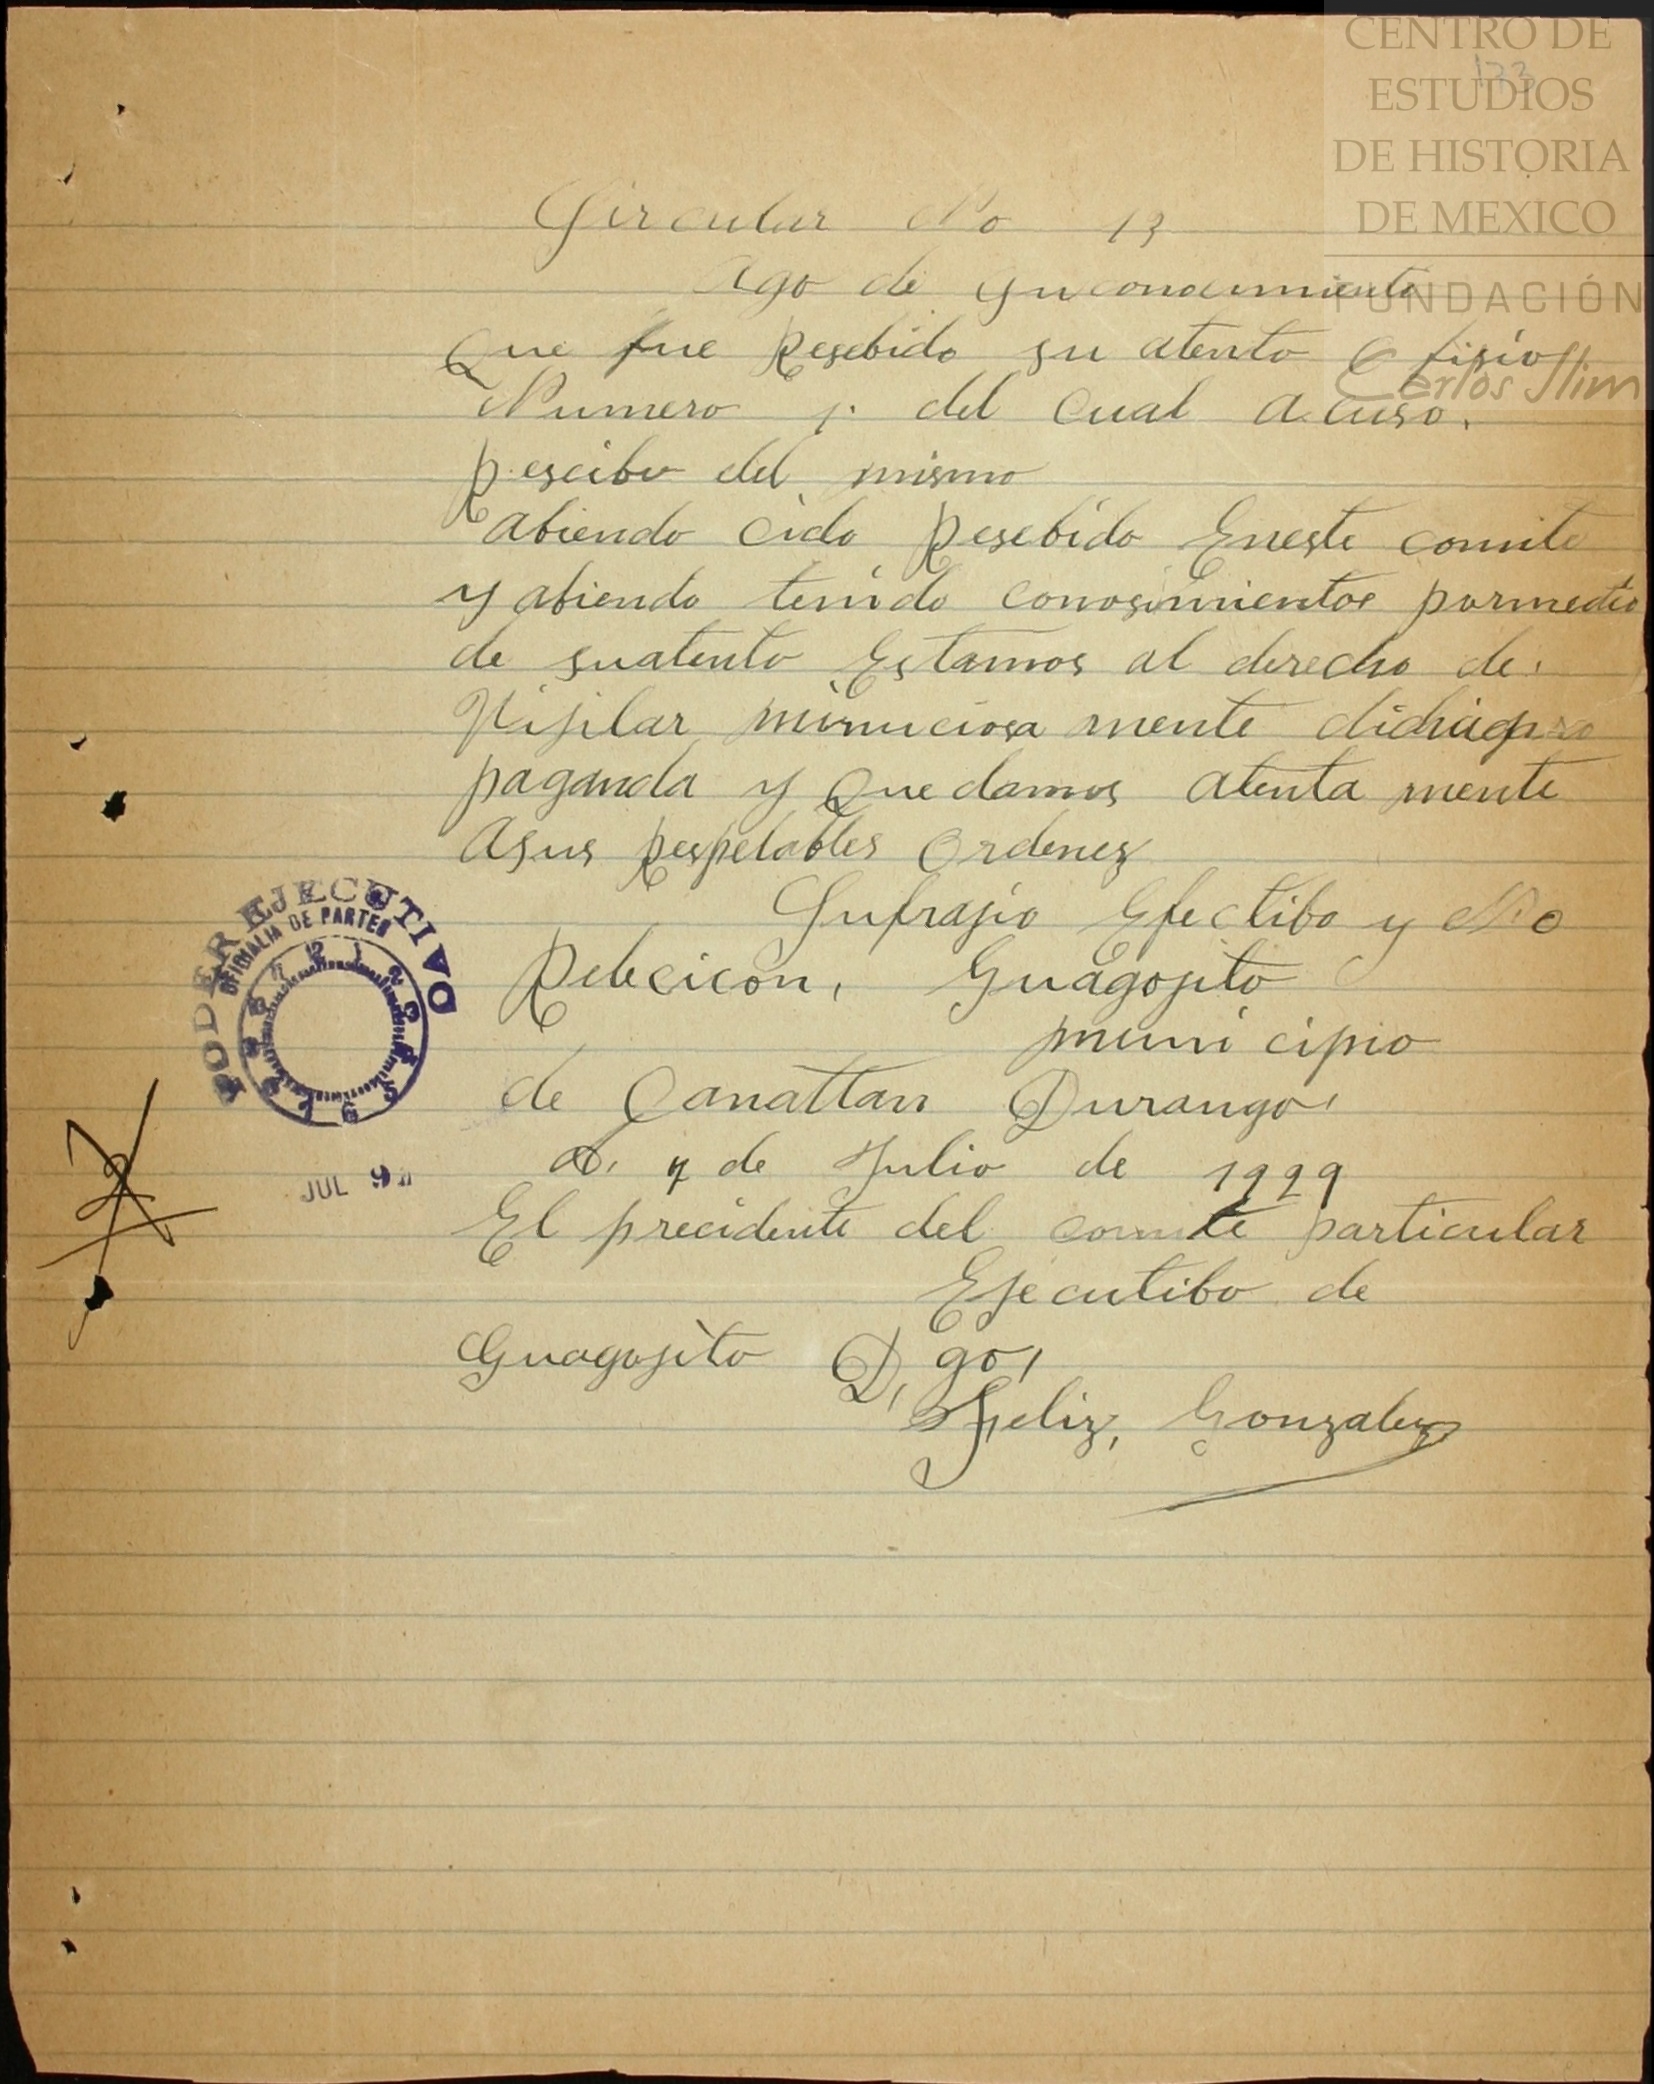 CENTRO DE
ESTUDIOS
DE HISTORIA
DE MEXICO
FUNDACIÓN
Carlos Slim
133
Circular No 13
Ago de su conocimiento
que fue Resebido su atento Ofisio
Numero 1. del cual acuso.
Rescibo del mismo
abiendo cido Resebido Eneste comite
y abiendo tenido conosimientos pormedio
de suatento Estamos al derecho de.
Vijilar minuciosa mente dicha pro
paganda y Quedamos atenta mente
asus Respetables Ordenes
Sufrajio Efectibo y No
Relecicon, Guagojito
municipio
de Canattan Durango,
A. 4 de Julio de 1929
El precidente del comite particular
Ejecutibo de
Guagojito D, go,
Feliz, Gonzalez
PODER EJECUTIVO
OFICIALIA DE PARTES
JUL 9